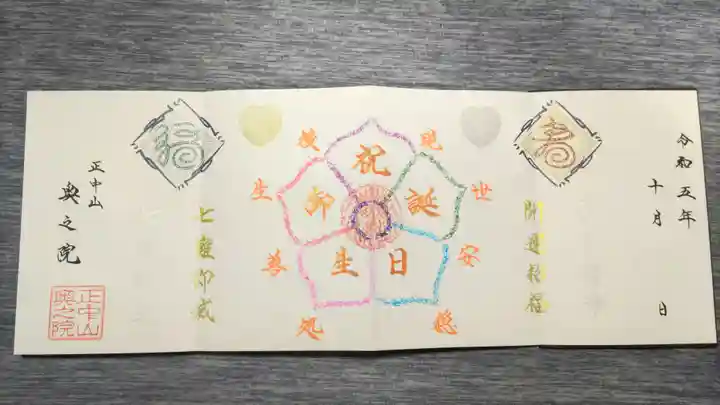 令和五年
十月 日
寿
開運招福
現世安穏
後生善処
祝御誕生日
七難即滅
福
正中山
奥之院
正中山
奥之院